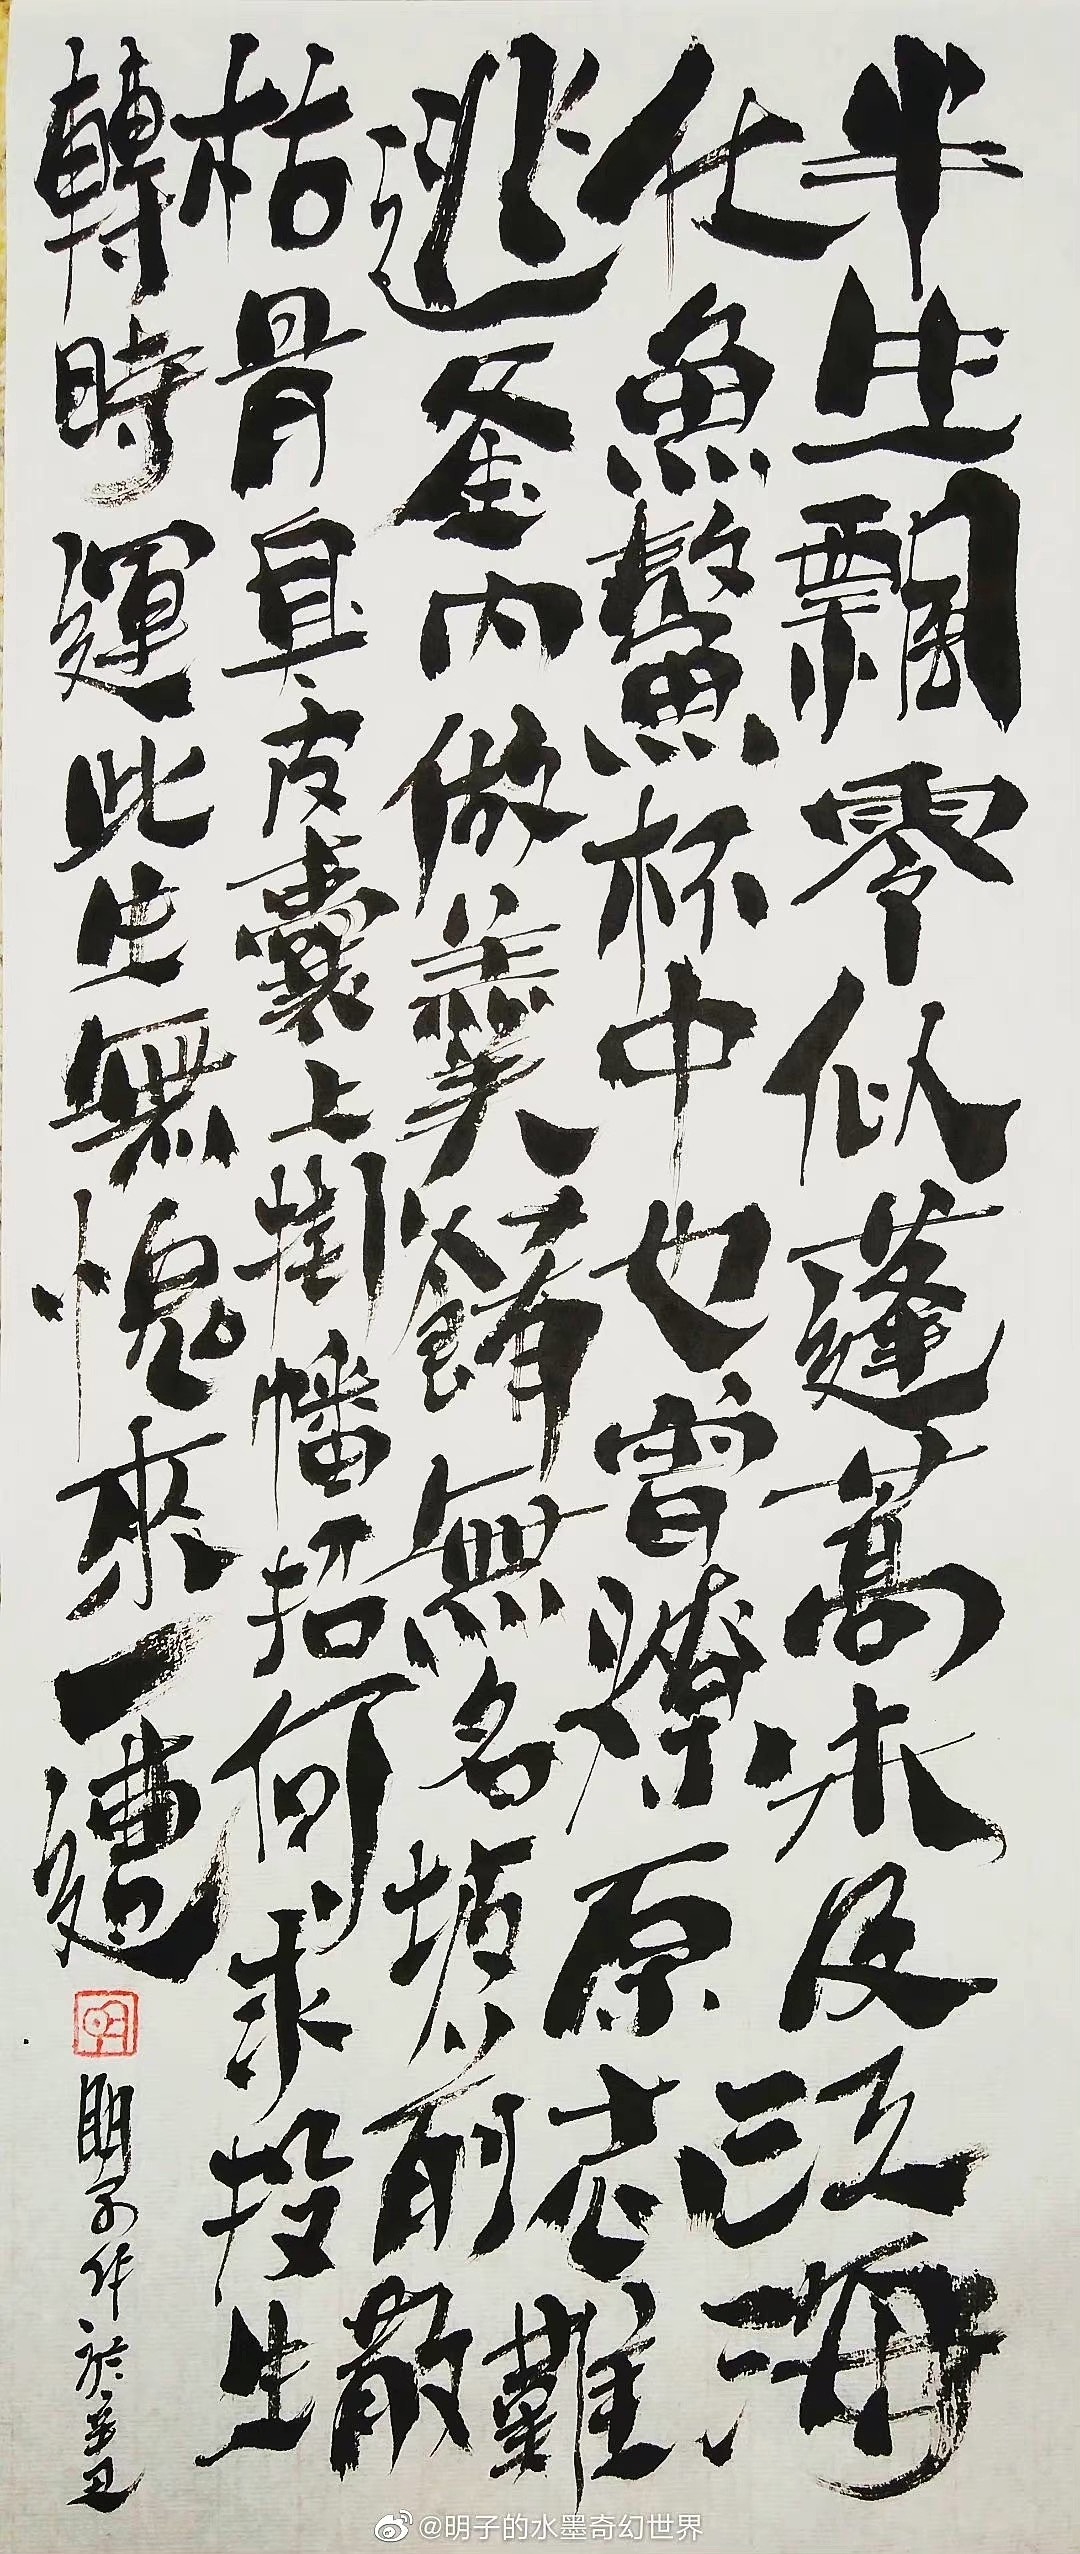 半生飄零似蓬蒿未及江海
化魚鰲杯中也曾燎原志難
逃釜內做羹餚無名坡前散
枯骨臭皮囊上掛幡招何求投生
轉時運此生無愧來一遭
明子作於辛丑
@明子的水墨奇幻世界